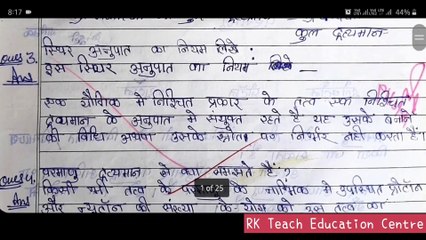 8:17
94%
कुल द्रव्यमान
Ques 3. स्थिर अनुपात का नियम लिखे :
Ans इस स्थिर अनुपात का नियम लिखे —
एक यौगिक मे निश्चित प्रकार के तत्व एक निश्चित
द्रव्यमान के अनुपात मे संयुक्त रहते है यह उसके बनाने
की विधि अथवा उसके स्रोत पर निर्भर नही करता है।
Ques 4. परमाणु द्रव्यमान से क्या समझते हैं?
Ans किसी भी तत्व के के नाभिक में उपस्थित प्रोटॉन
1 of 25
और न्यूट्रॉन की संख्या के योग को उस तत्व का
RK Teach Education Centre